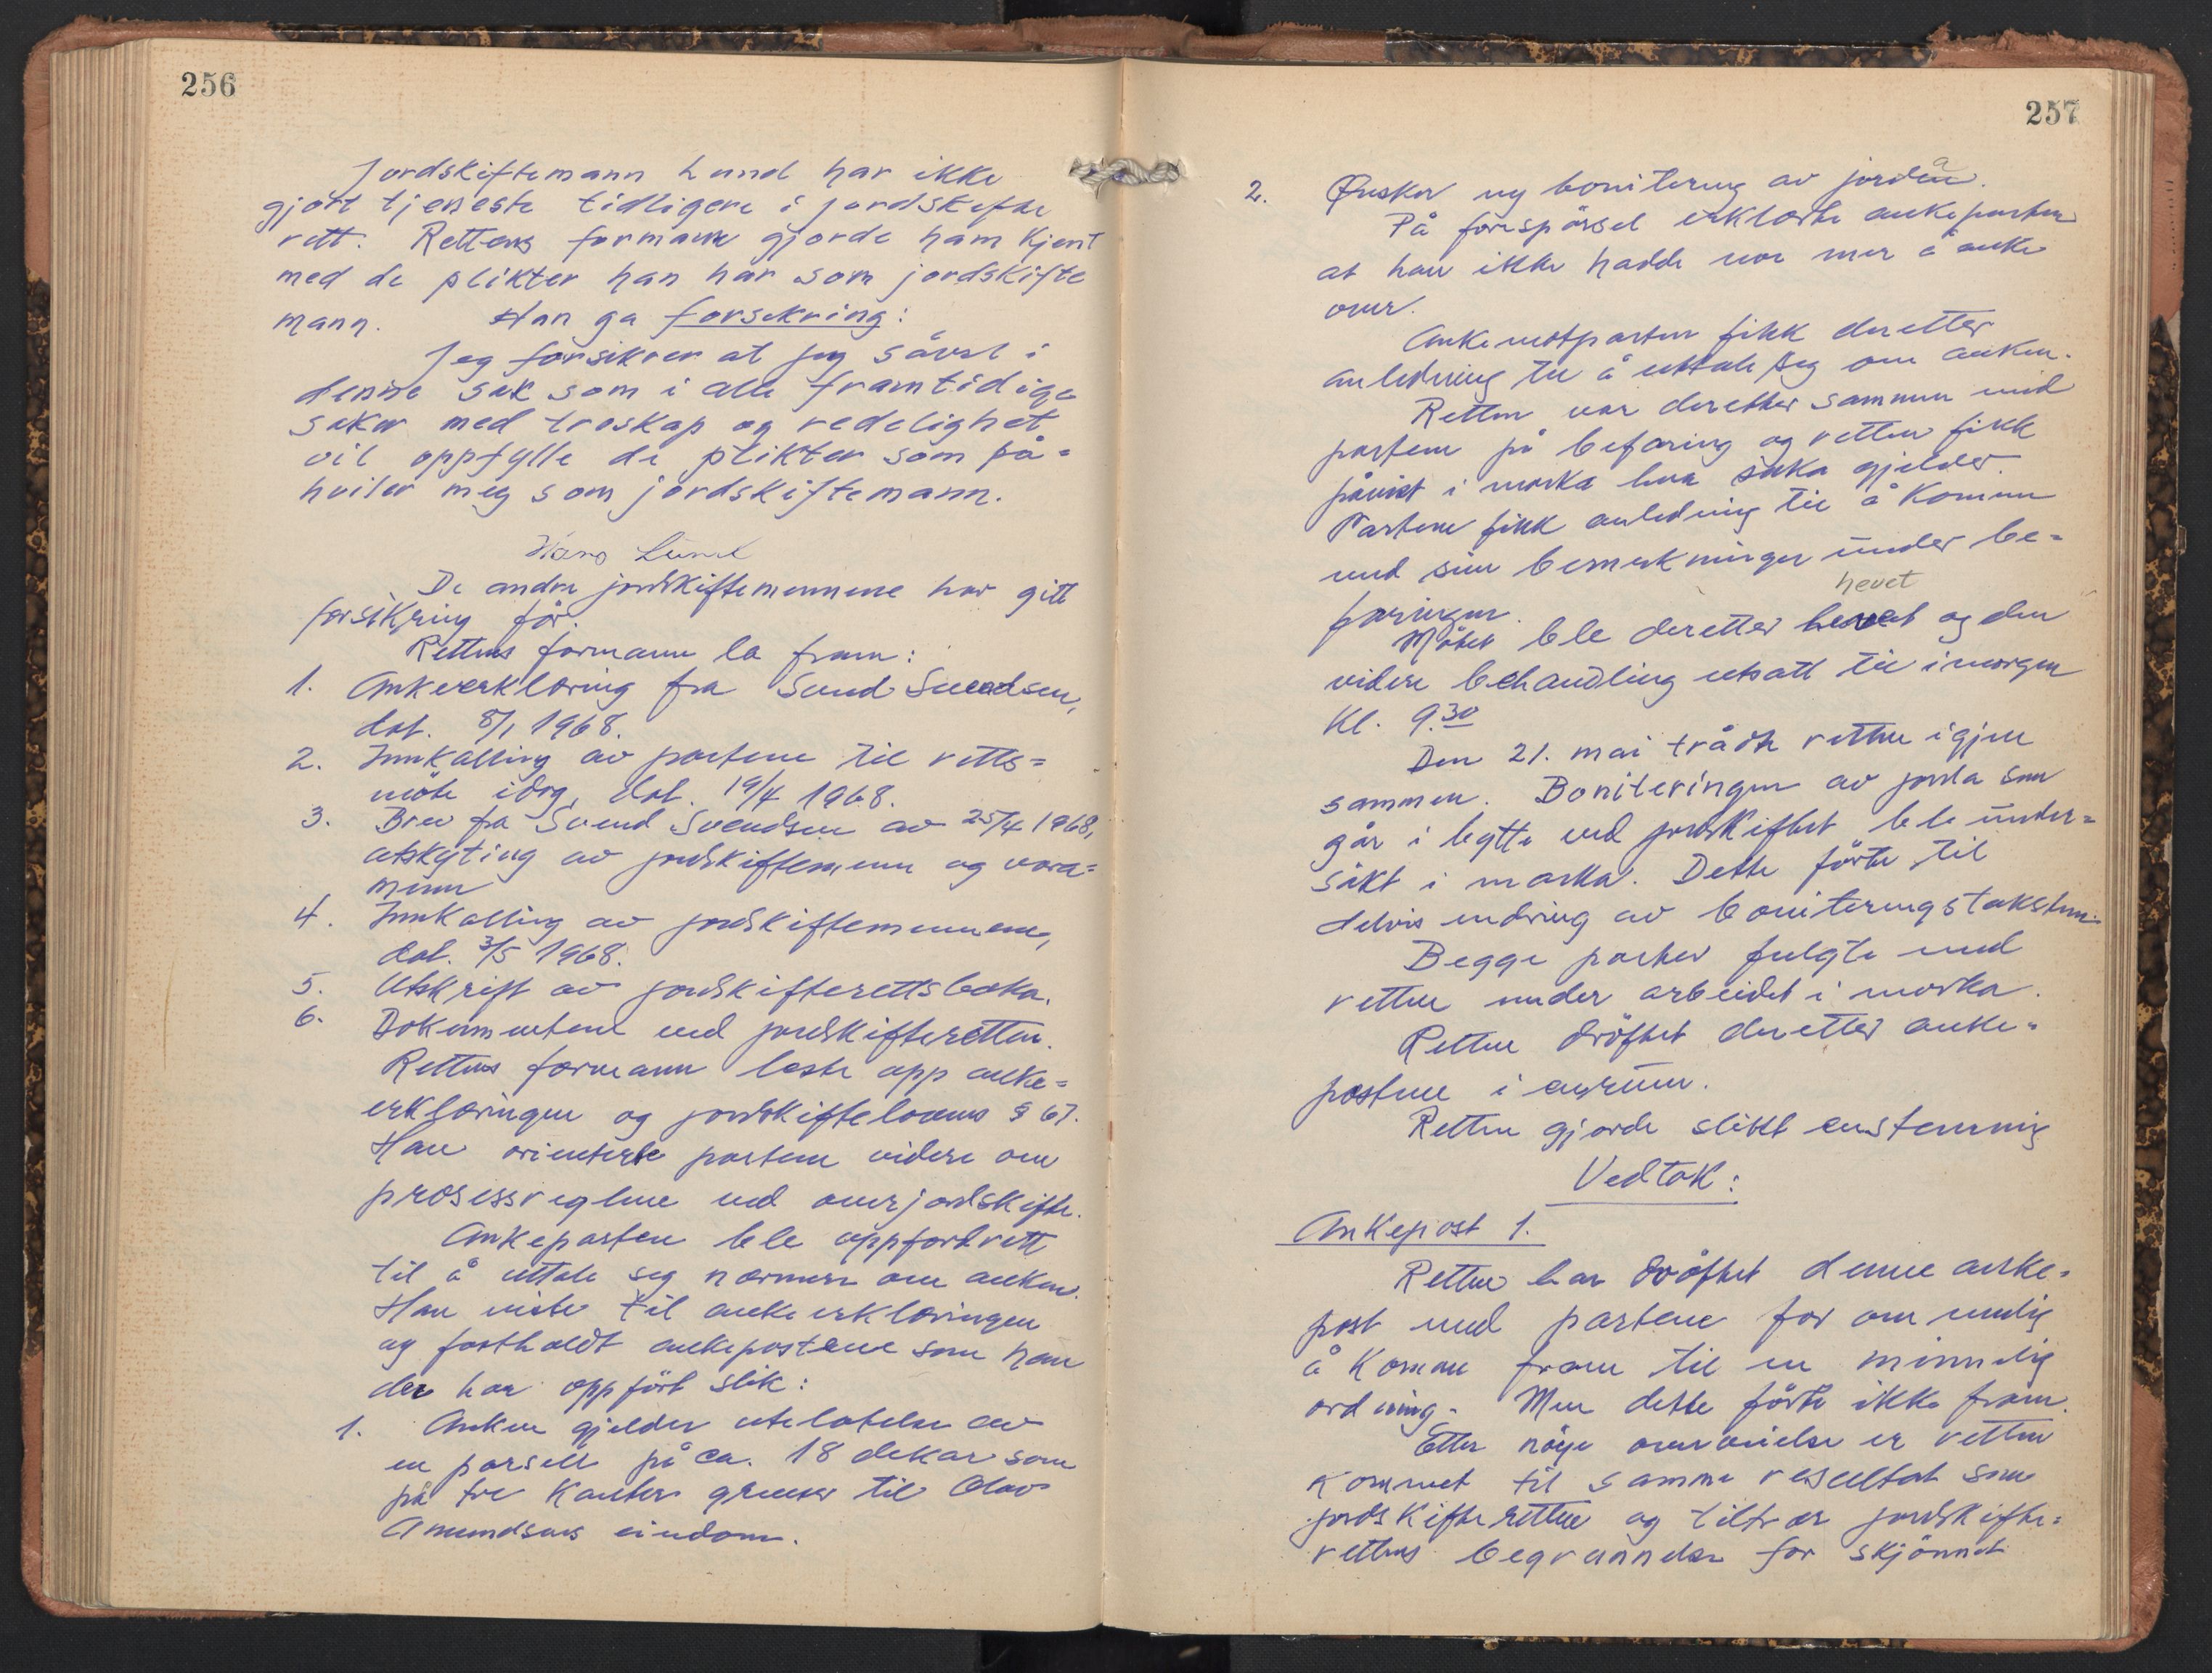 256
Jordskiftemann Lund har ikke
gjört tjeneste tidligere i jordskifte
rett. Rettens formann gjorde ham kjent
med de plikter han har som jordskifte
mann. Han ga forsikring:
Jeg forsikrer at jeg såvel i
denne sak som i alle framtidige
saker med troskap og redelighet
vil oppfylle de plikter som på=
hviler meg som jordskiftemann.
Hans Lund
De andre jordskiftemennene har gitt
forsikring før.
Rettens formann la fram:
1. Ankeerklæring fra Svend Svendsen,
dat. 8/1 1968.
2. Innkalling av partene til retts=
möte idag, dat. 19/4 1968.
3. Brev fra Svend Svendsen av 25/4 1968,
utskyting av jordskiftemenn og vara=
menn
4. Innkalling av jordskiftemennene,
dat. 3/5 1968.
5. Utskrift av jordskifterettsboka.
6. Dokumentene ved jordskifteretten.
Rettens formann leste opp anke=
erklæringen og jordskiftelovens § 67.
Han orienterte partene videre om
prosessreglene ved overjordskifte.
Ankeparten ble oppfordrett
til å uttale seg nærmere om anken.
Han viste til ankeerklæringen
og fastholdt ankepostene som han
der har oppført slik:
1. Anken gjelder utelatelse av
en parsell på ca. 18 dekar som
på tre kanter grenser til Olav
Amundsens eiendom.
257
2. Ønsker ny bonitering av jorden.
a
På forespørsel erklærte ankeparten
at han ikke hadde noe mer å anke
over.
Ankemotparten fikk deretter
anledning til å uttale seg om anken.
Retten var deretter sammen med
partene på befaring og retten fikk
påvist i marka hva saka gjelder.
Partene fikk anledning til å komme
med sine bemerkninger under be=
faringen.
hevet
Møtet ble deretter hevet og den
videre behandling utsatt til imorgen
kl. 9.30
Den 21. mai trådte retten igjen
sammen. Boniteringen av jorda som
går i bytte ved jordskiftet ble under=
søkt i marka. Dette førte til
delvis endring av boniteringstaksten.
Begge parter fulgte med
retten under arbeidet i marka.
Retten drøftet deretter anke=
postene i enerum.
Retten gjorde slikt enstemmig
Vedtak:
Ankepost 1.
Retten har drøftet denne anke=
post med partene for om mulig
å komme fram til en minnelig
ordning. Men dette førte ikke fram.
Etter nøye overveielse er retten
kommet til samme resultat som
jordskifteretten og tiltrer jordskifte=
rettens begrunnelse for skjønnet